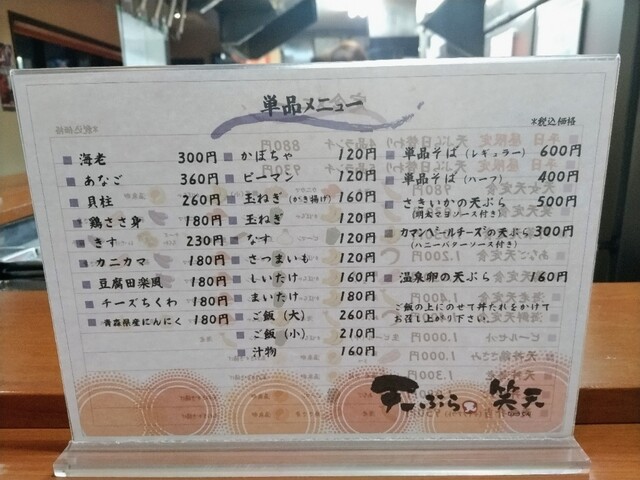 単品メニュー
*税込価格
海老 300円
あなご 360円
貝柱 260円
鶏ささ身 180円
きす 230円
カニカマ 180円
豆腐田楽風 180円
チーズちくわ 180円
青森県産にんにく 180円
かぼちゃ 120円
ピーマン 120円
玉ねぎ(かき揚げ) 160円
玉ねぎ 120円
なす 120円
さつまいも 120円
しいたけ 160円
まいたけ 180円
ご飯(大) 260円
ご飯(小) 210円
汁物 160円
単品そば(レギュラー) 600円
単品そば(ハーフ) 400円
さきいかの天ぷら 500円
(明太マヨソース付き)
カマンベールチーズの天ぷら 300円
(ハニーバターソース付き)
温泉卵の天ぷら 160円
ご飯の上にのせて丼たれをかけて
お召し上がり下さい。
天ぷら 笑天